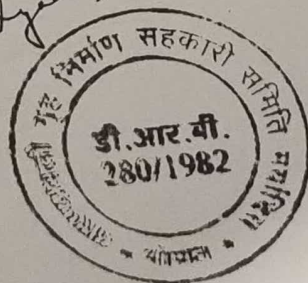 गृह निर्माण सहकारी समिति मर्यादित
डी.आर.बी.
280/1982
* भोपाल *